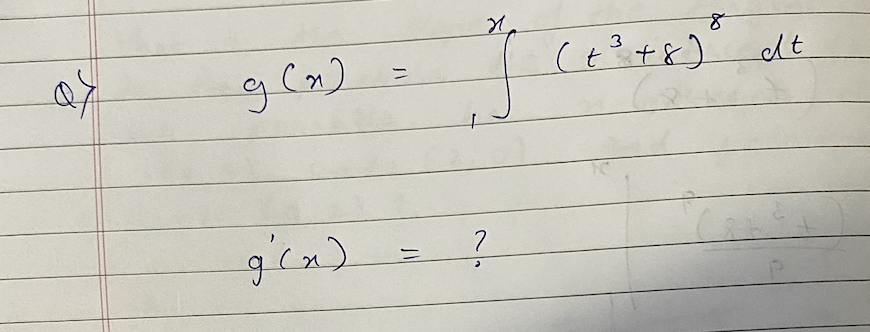 Q> g(x) = ∫₁ˣ (t³+8)⁸ dt
g'(x) = ?